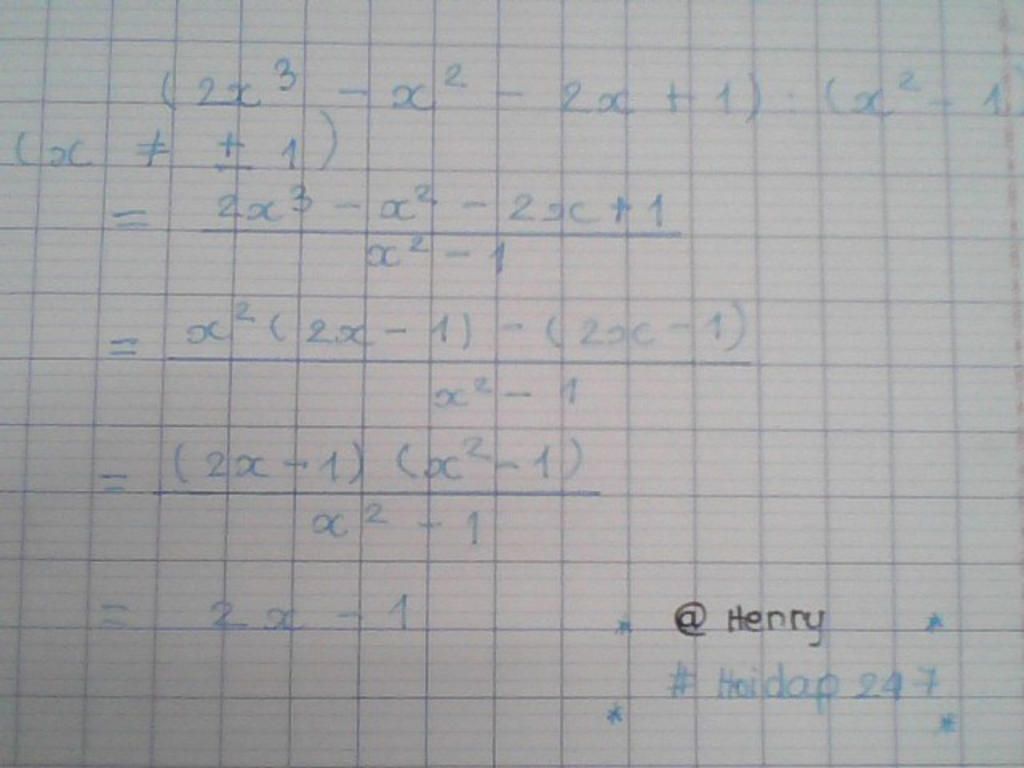 (2x³ - x² - 2x + 1) : (x² - 1)
(x ≠ ± 1)
= \frac{2x³ - x² - 2x + 1}{x² - 1}
= \frac{x²(2x - 1) - (2x - 1)}{x² - 1}
= \frac{(2x - 1)(x² - 1)}{x² - 1}
= 2x - 1
@ Henry
# Hoidap 247